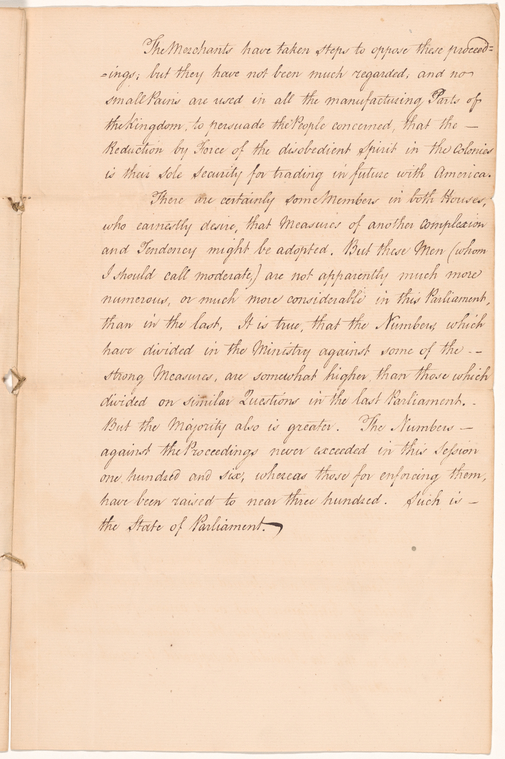 The Merchants have taken steps to oppose these proceed=
=ings; but they have not been much regarded, and no
small Pains are used in all the manufacturing Parts of
the Kingdom, to persuade the People concerned, that the —
Reduction by Force of the disobedient Spirit in the Colonies
is their sole Security for trading in future with America.
There are certainly some Members in both Houses,
who earnestly desire, that Measures of another complexion
and Tendency might be adopted. But these Men (whom
I should call moderate,) are not apparently much more
numerous, or much more considerable in this Parliament,
than in the last. It is true, that the Numbers, which
have divided in the Ministry against some of the --
strong Measures, are somewhat higher, than those which
divided on similar Questions in the last Parliament. -
But the Majority also is greater. The Numbers —
against the Proceedings never exceeded in this Session
one hundred and six; whereas those for enforcing them,
have been raised to near three hundred. Such is —
the State of Parliament.